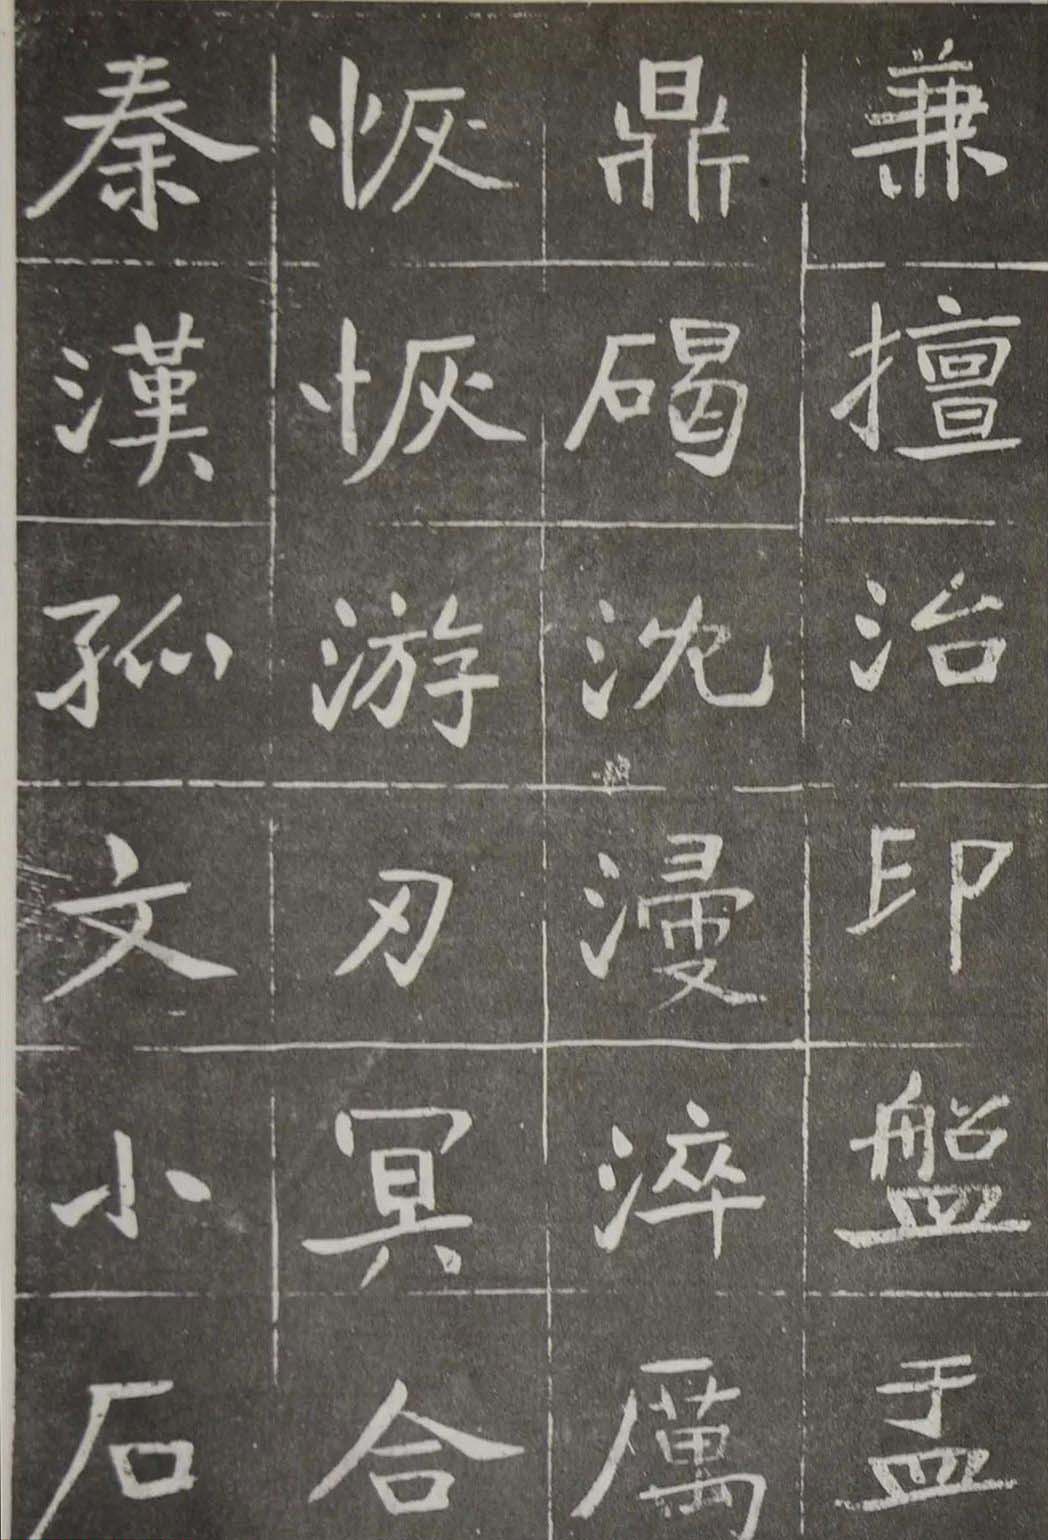 兼擅治印盤盂
鼎碣沈漫淬厲
恢恢游刃冥合
秦漢孤文小石